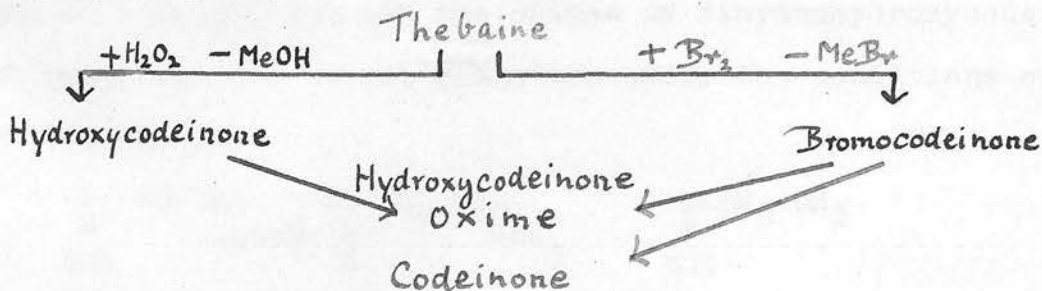 Thebaine
+H₂O₂ -MeOH
+ Br₂ - MeBr
Hydroxycodeinone
Bromocodeinone
Hydroxycodeinone
Oxime
Codeinone